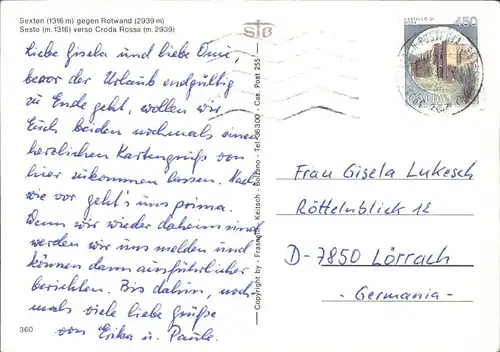 Sexten (1316 m) gegen Rotwand (2939 m)
Sesto (m. 1316) verso Croda Rossa (m. 2939)
Liebe Gisela und liebe Omi,
bevor der Urlaub endgültig
zu Ende geht, wollen wir
Euch beiden nochmals einen
herzlichen Kartengruß von
hier zukommen lassen. Nach
wie vor geht's uns prima.
Wenn wir wieder daheim sind
werden wir uns melden und
können dann ausführlicher
berichten. Bis dahin, noch-
mals viele liebe Grüße
von Erika u. Paule.
360
STB
Copyright by - Frasnelli - Keitsch - Bolzano - Tel. 36300 - Cas. Post 255
CASTELLO DI
450
Frau Gisela Lukesch
Röttelnblick 12
D-7850 Lörrach
- Germania -